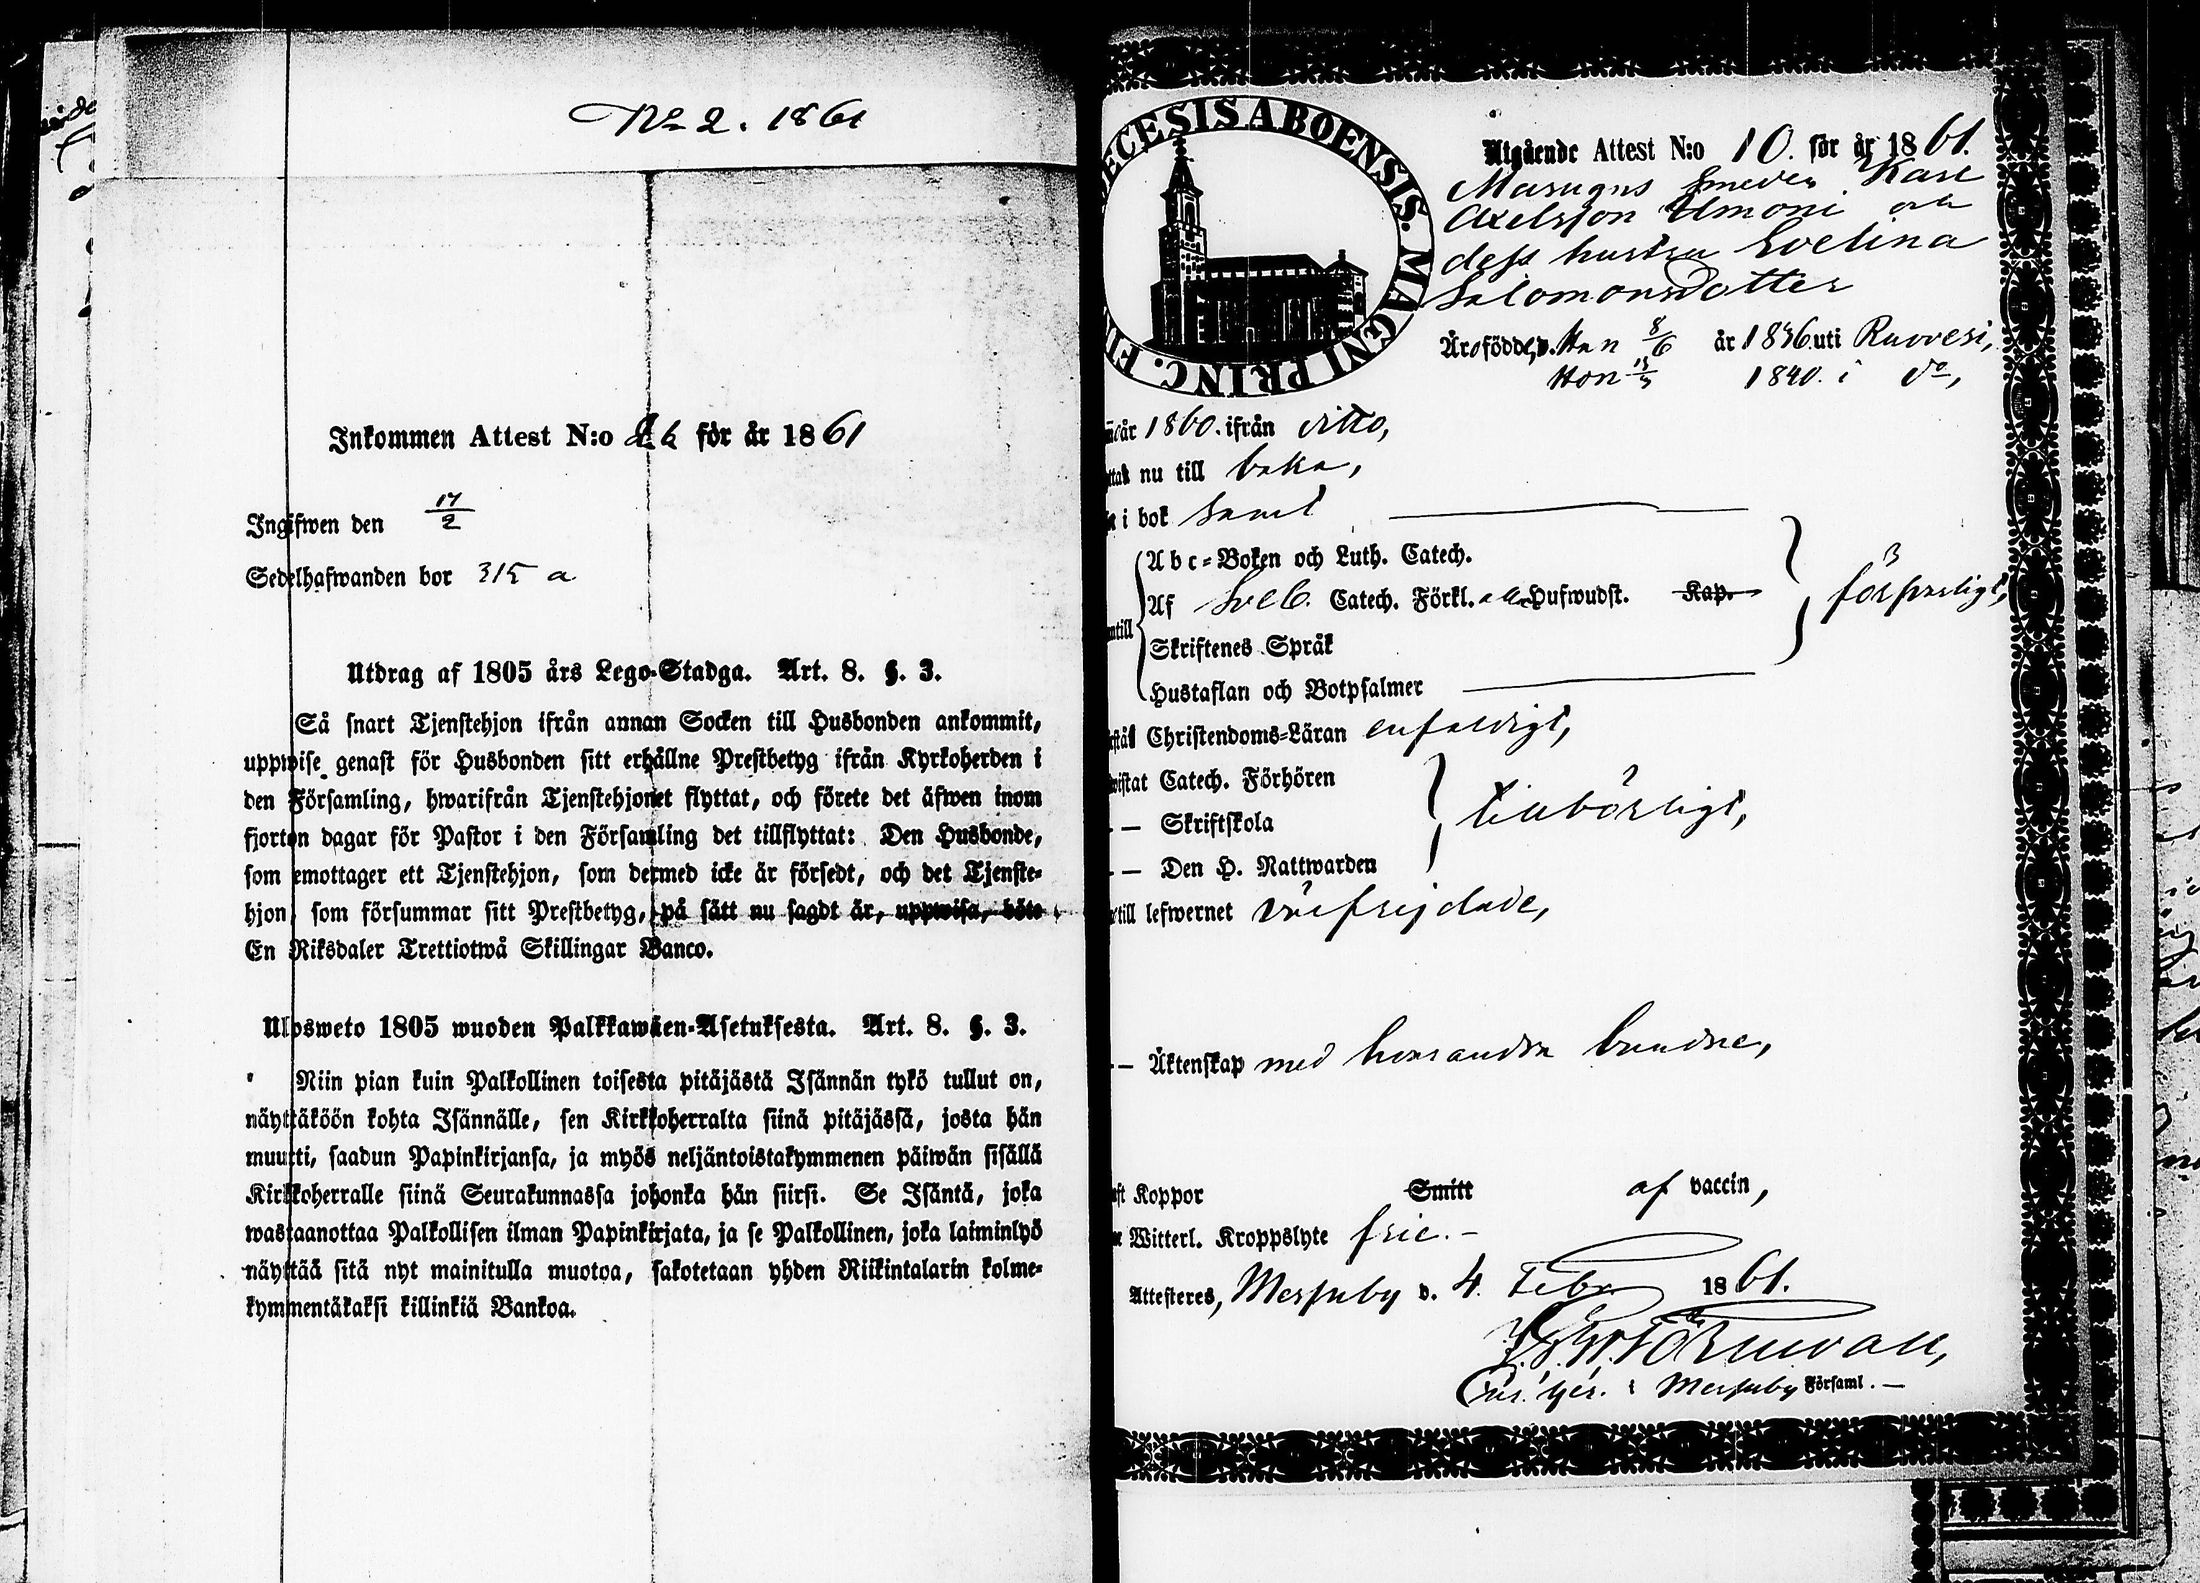 No 2. 1861
Inkommen Attest N:o för år 1861
Ingifwen den 17/2
Sedelhafwanden bor 315 a
Utdrag af 1805 års Lego-Stadga. Art. 8. §. 3.
Så snart Tjenstehjon ifrån annan Socken till Husbonden ankommit,
uppwise genast för Husbonden sitt erhållne Prestbetyg ifrån Kyrkoherden i
den Församling, hwarifrån Tjenstehjonet flyttat, och förete det äfwen inom
fjorton dagar för Pastor i den Församling det tillflyttat: Den Husbonde,
som emottager ett Tjenstehjon, som dermed icke är försedt, och det Tjenste-
hjon, som försummar sitt Prestbetyg, på sätt nu sagdt är, uppwisa, böte
En Riksdaler Trettiotwå Skillingar Banco.
Ulosweto 1805 wuoden Palkkawäen-Asetuksesta. Art. 8. §. 3.
Niin pian kuin Palkollinen toisesta pitäjästä Isännän tykö tullut on,
näyttäköön kohta Isännälle, sen Kirkkoherralta siinä pitäjässä, josta hän
muutti, saadun Papinkirjansa, ja myös neljäntoistakymmenen päiwän sisällä
Kirkkoherralle siinä Seurakunnassa johonka hän siirsi. Se Isäntä, joka
wastaanottaa Palkollisen ilman Papinkirjata, ja se Palkollinen, joka laiminlyö
näyttää sitä nyt mainitulla muotoa, sakotetaan yhden Riikintalarin kolme-
kymmentäkaksi killinkiä Bankoa.
ECESIS ABOENSIS. MAGNI PRINC. FI
Utgående Attest N:o 10. för år 1861.
Masugns smeden Karl
Axelsson Ulmoni och
dess hustru Evelina
Salomonsdotter
Äro födde, Han 8/6 år 1836 uti Ruovesi,
Hon 1840. i do,
år 1860. ifrån ditto,
nu till baka,
i bok samt
Abc-Boken och Luth. Catech.
Af Sveb. Catech. Förkl. Hufwudst. Kap.
Skriftenes Språk
Hustaflan och Botpsalmer
försvarligt,
Christendoms-Läran enfaldigt,
Catech. Förhören
— Skriftskola
— Den H. Nattwarden
tillbörligt,
till lefwernet välfrejdade,
— Äktenskap med hvarandra bundne,
Koppor Smitt af vaccin,
Witterl. Kroppslyte frie. -
Attesteres, Messuby d. 4. Febr 1861.
Törnwall,
i Messuby Församl. —